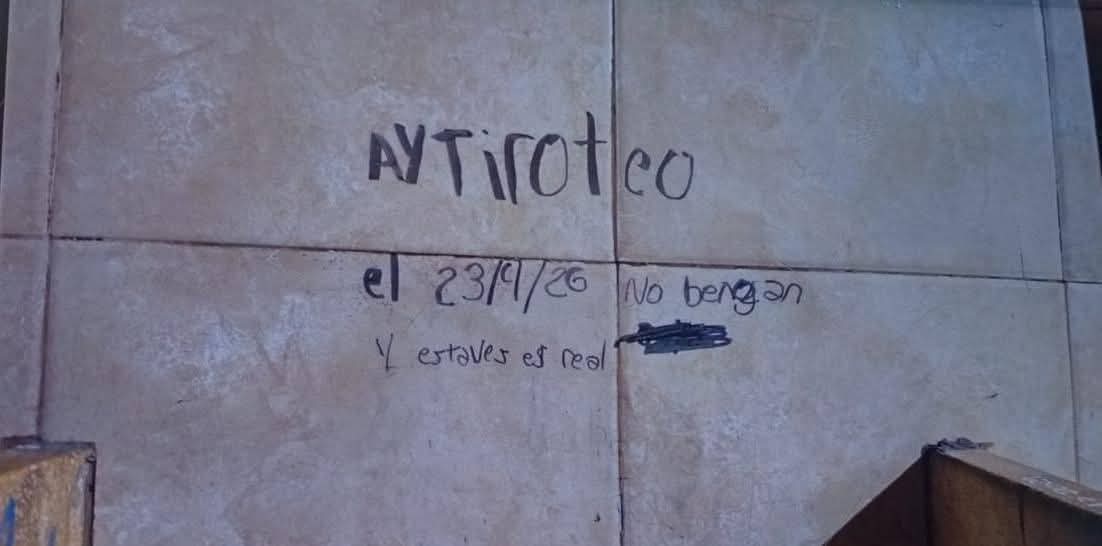 AY Tiroteo
el 23/4/26 No bengan
Y estaves es real